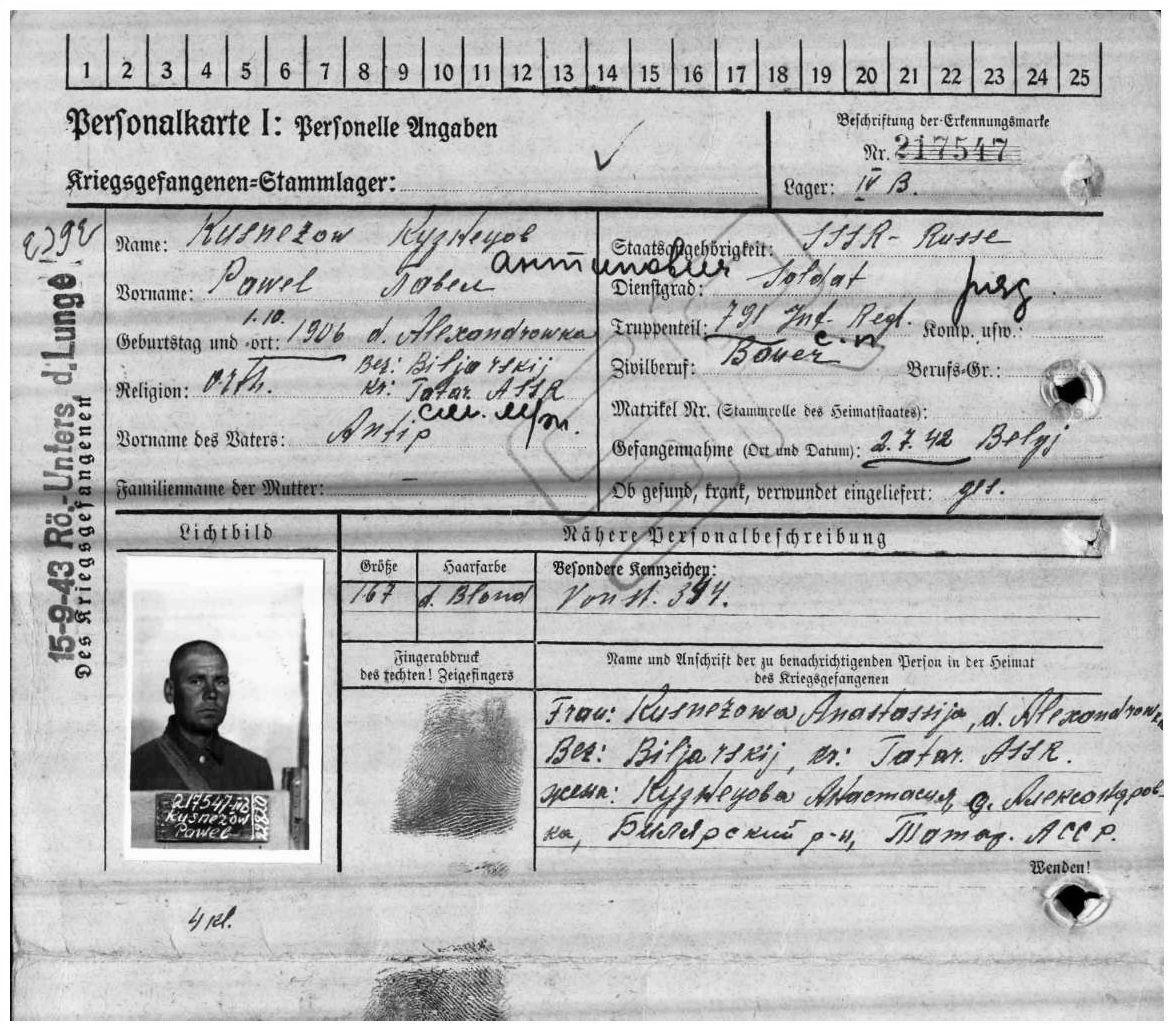 1 2 3 4 5 6 7 8 9 10 11 12 13 14 15 16 17 18 19 20 21 22 23 24 25
Personalkarte I: Personelle Angaben
Kriegsgefangenen-Stammlager:
Beschriftung der Erkennungsmarke
Nr. 217547
Lager: IV B.
Name: Kusnezow Кузнецов
Vorname: Pawel Павел Антипович
Geburtstag und -ort: 1.10. 1906 d. Alexandrowka
Bez: Biljarskij
kr: Tatar ASSR
Religion: orth.
Vorname des Vaters: Antip
Familienname der Mutter: –
Staatsangehörigkeit: SSSR - Russe
Dienstgrad: Soldat
Truppenteil: 791 Inf. Regt. Komp. usw.:
Zivilberuf: Bauer Berufs-Gr.:
Matrikel Nr. (Stammrolle des Heimatstaates):
Gefangennahme (Ort und Datum): 2.7.42 Belyj
Ob gesund, krank, verwundet eingeliefert: ges.
15-9-43 Rö.-Unters. d. Lunge
Des Kriegsgefangenen
Lichtbild
Nähere Personalbeschreibung
Größe Haarfarbe Besondere Kennzeichen:
167 d. Blond Von st. 344.
Fingerabdruck
des rechten! Zeigefingers
Name und Anschrift der zu benachrichtigenden Person in der Heimat
des Kriegsgefangenen
Frau: Kusnezowa Anastassija, d. Alexandrowka
Bez: Biljarskij, kr: Tatar. ASSR.
жена: Кузнецова Анастасия, д. Александров-
ка, Билярский р-н, Татар. АССР.
Wenden!
217547
Kusnezow
Pawel
4 kl.